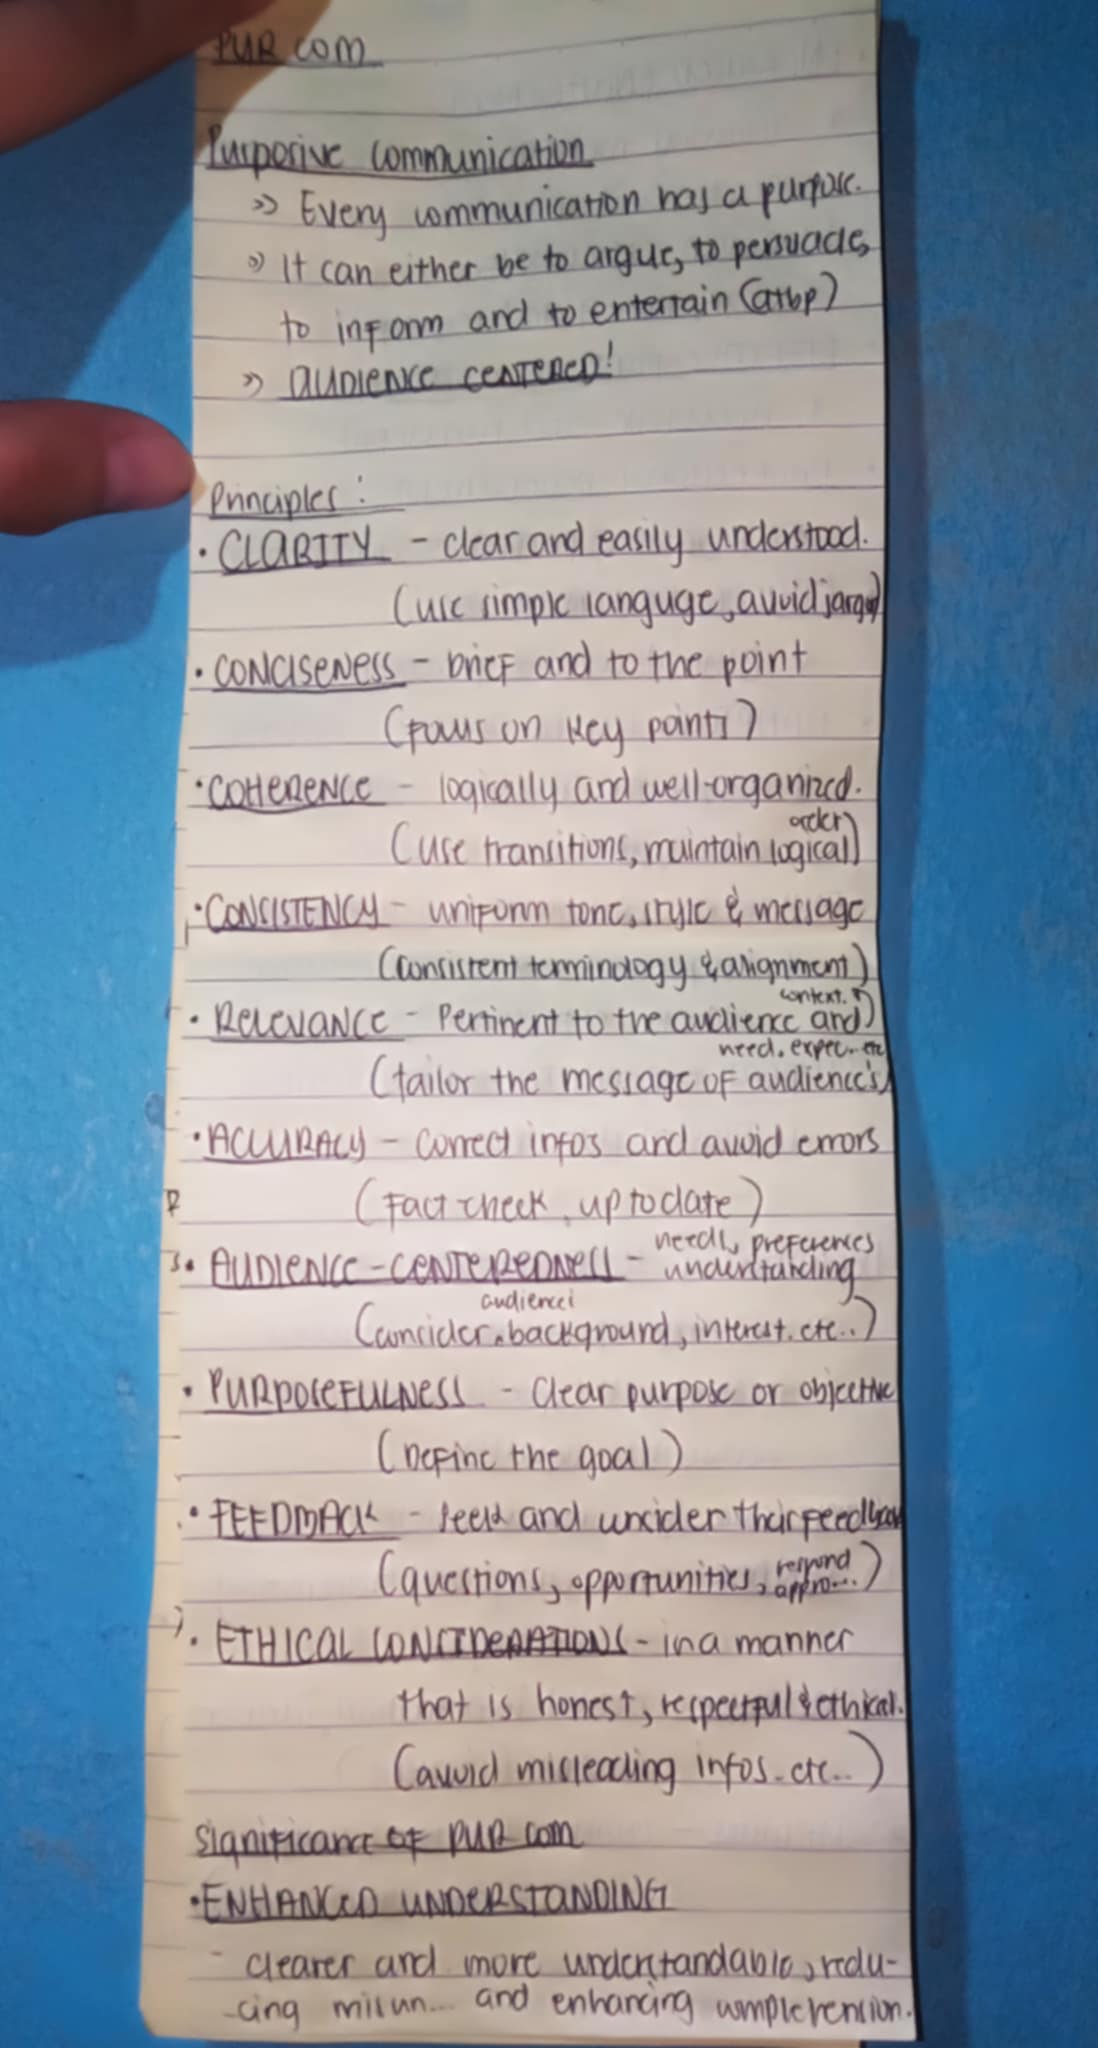 PUR COM
Purposive Communication
>> Every communication has a purpose.
>> It can either be to argue, to persuade,
to inform and to entertain (atbp)
>> AUDIENCE CENTERED!
Principles:
• CLARITY - clear and easily understood.
(use simple languge, avoid jargon)
• CONCISENESS - brief and to the point
(focus on key points)
• COHERENCE - logically and well-organized.
(use transitions, maintain logical order)
• CONSISTENCY - uniform tone, style & message
(consistent terminology & alignment)
• RELEVANCE - Pertinent to the audience and context.
(tailor the message of audience's need, expec... etc)
• ACCURACY - correct infos and avoid errors
(Fact check, up to date)
• AUDIENCE-CENTEREDNESS - needs, preferences
understanding
(consider audiences background, interest. etc..)
• PURPOSEFULNESS - Clear purpose or objective
(Define the goal)
• FEEDBACK - seek and consider their feedback
(questions, opportunities, respond appro....)
• ETHICAL CONSIDERATIONS - in a manner
that is honest, respectful & ethical.
(avoid misleading infos. etc...)
Significance of PUR COM
• ENHANCED UNDERSTANDING
- clearer and more understandable, redu-
-cing misun... and enhancing comprehension.